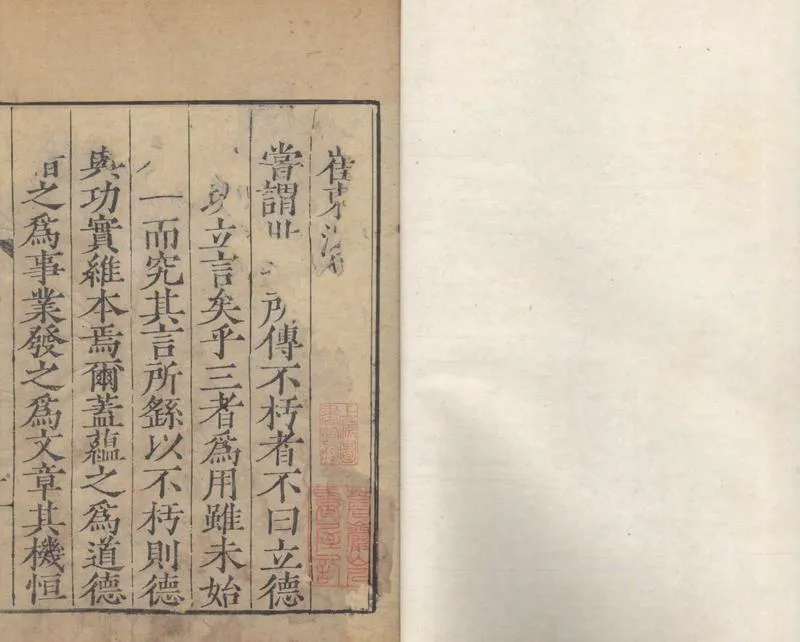 崔東洲
嘗謂世所傳不朽者不曰立德
立言矣乎三者爲用雖未始
一而究其言所繇以不朽則德
與功實維本焉爾蓋蘊之爲道德
之爲事業發之爲文章其機恒